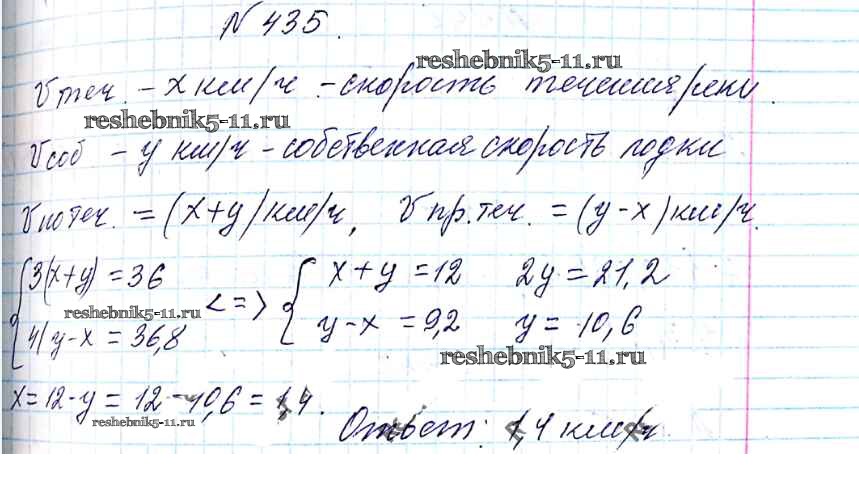 № 435.
reshebnik5-11.ru
Vтеч. - x км/ч - скорость течения реки.
reshebnik5-11.ru
Vсоб - y км/ч - собственная скорость лодки
Vпо теч. = (x+y) км/ч, Vпр.теч. = (y-x) км/ч.
{ 3(x+y) = 36 <=> { x+y = 12 2y = 21,2
reshebnik5-11.ru
4(y-x = 36,8 y-x = 9,2 y = 10,6
reshebnik5-11.ru
x = 12-y = 12-10,6 = 1,4.
reshebnik5-11.ru
Ответ: 1,4 км/ч